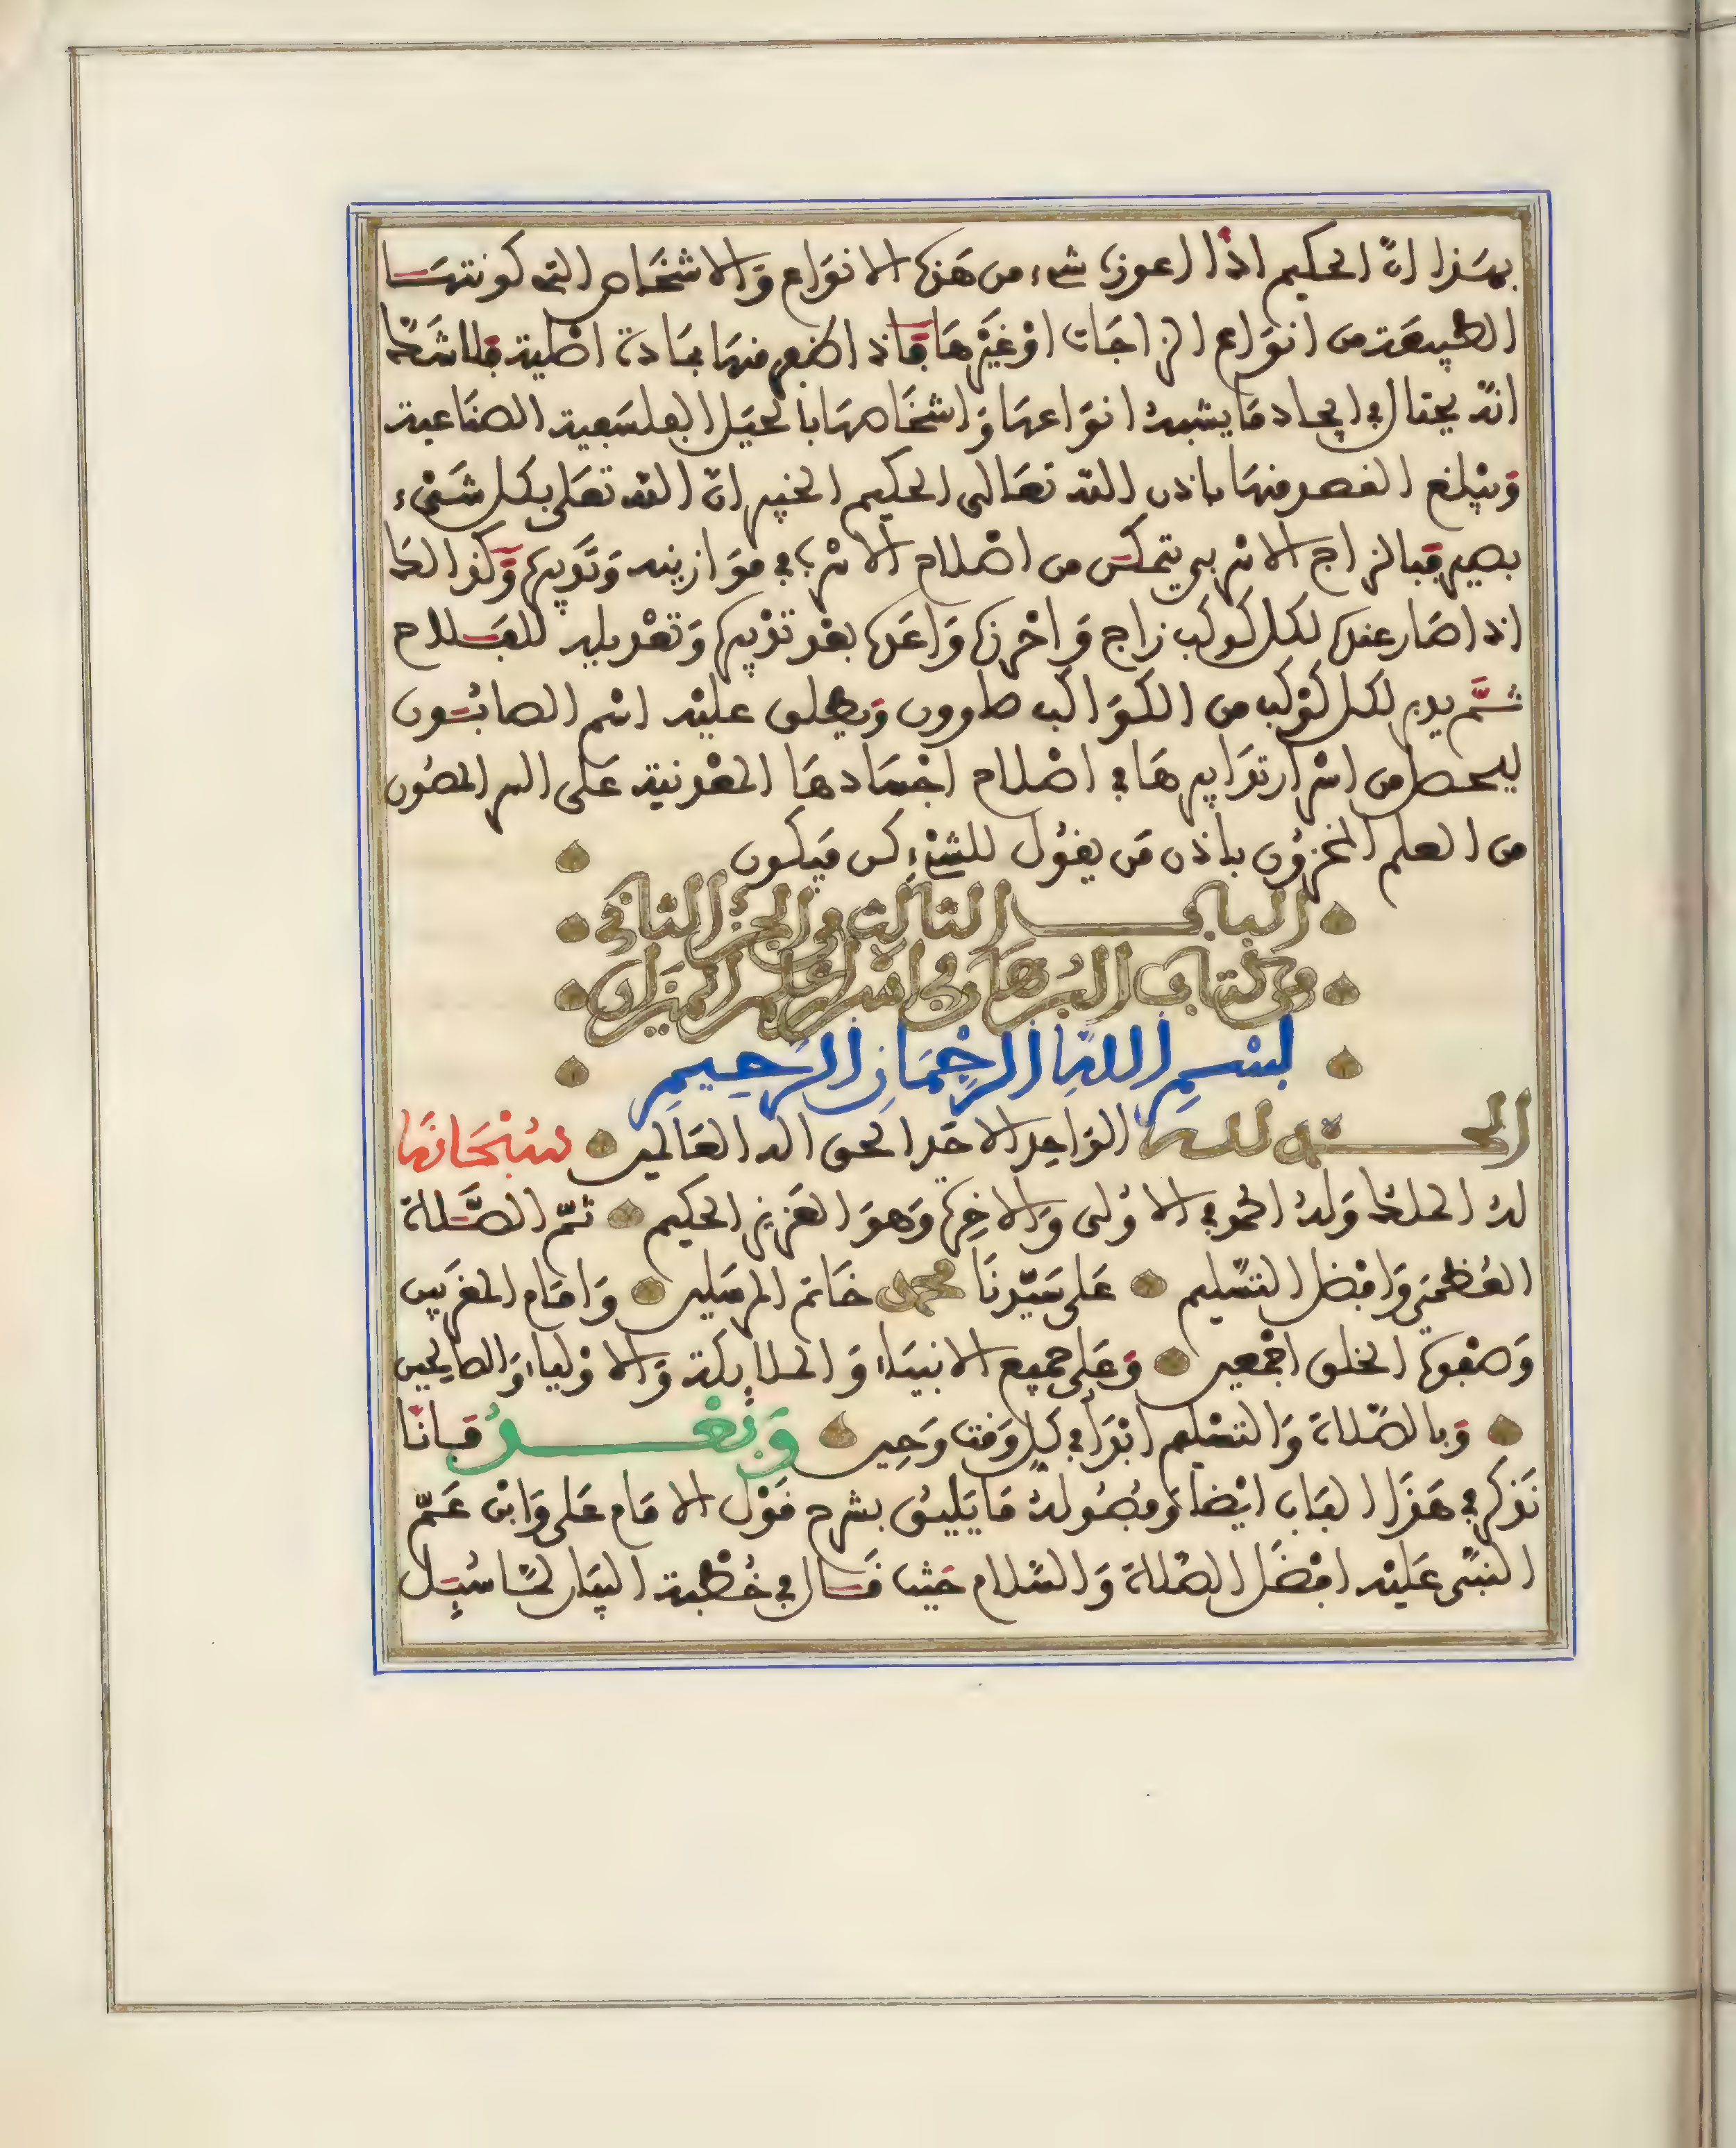 بهذا ان الحكيم اذا اعوزه شيء من هذه الانواع والاشخاص التى كونتها
الطبيعة من انواع الزاجات او غيرها فانه اذا ظفر منها بمادة اصلية فلا شك
انه يحتال في ايجاد ما يشبه انواعها واشخاصها بالحيل الفلسفية الصناعية
ويبلغ القصد منها باذن الله تعالى الحكيم الخبير ان الله تعلى بكل شيء
بصير فبالزاج الاثربي يتمكن من اصلاح الاثرب في موازينه وتدبيره وكذالك
اذا صار عنده لكل كوكب زاج واحرزه واعده بعد تدبيره وتعديله للفلاح
ثم يدبر لكل كوكب من الكواكب صابون ويطلق عليه اسم الصابون
ليحصل من اسرار تدابيرها في اصلاح اجسادها المعدنية على السر المصون
من العلم المخزون باذن من يقول للشيء كن فيكون
الباب الثالث من الجزء الثاني
من كتاب البرهان في اسرار علم الميزان
بسم الله الرحمان الرحيم
الحمد لله الواحد الاحد الحق اله العالمين سبحانه
له الملك وله الحمد في الاولى والاخرة وهو العزيز الحكيم ثم الصلاة
العظمى وافضل التسليم على سيدنا محمد خاتم المرسلين وامام المقربين
وصفوة الخلق اجمعين وعلى جميع الانبياء والملائكة والاولياء والصالحين
وبالصلاة والتسليم ابدا في كل وقت وحين وبعد فاننا
نذكر في هذا الباب ايضا وفصوله ما يليق بشرح قول الامام على وابن عم
النبى عليه افضل الصلاة والسلام حيث قال في خطبة البيان لما سئل